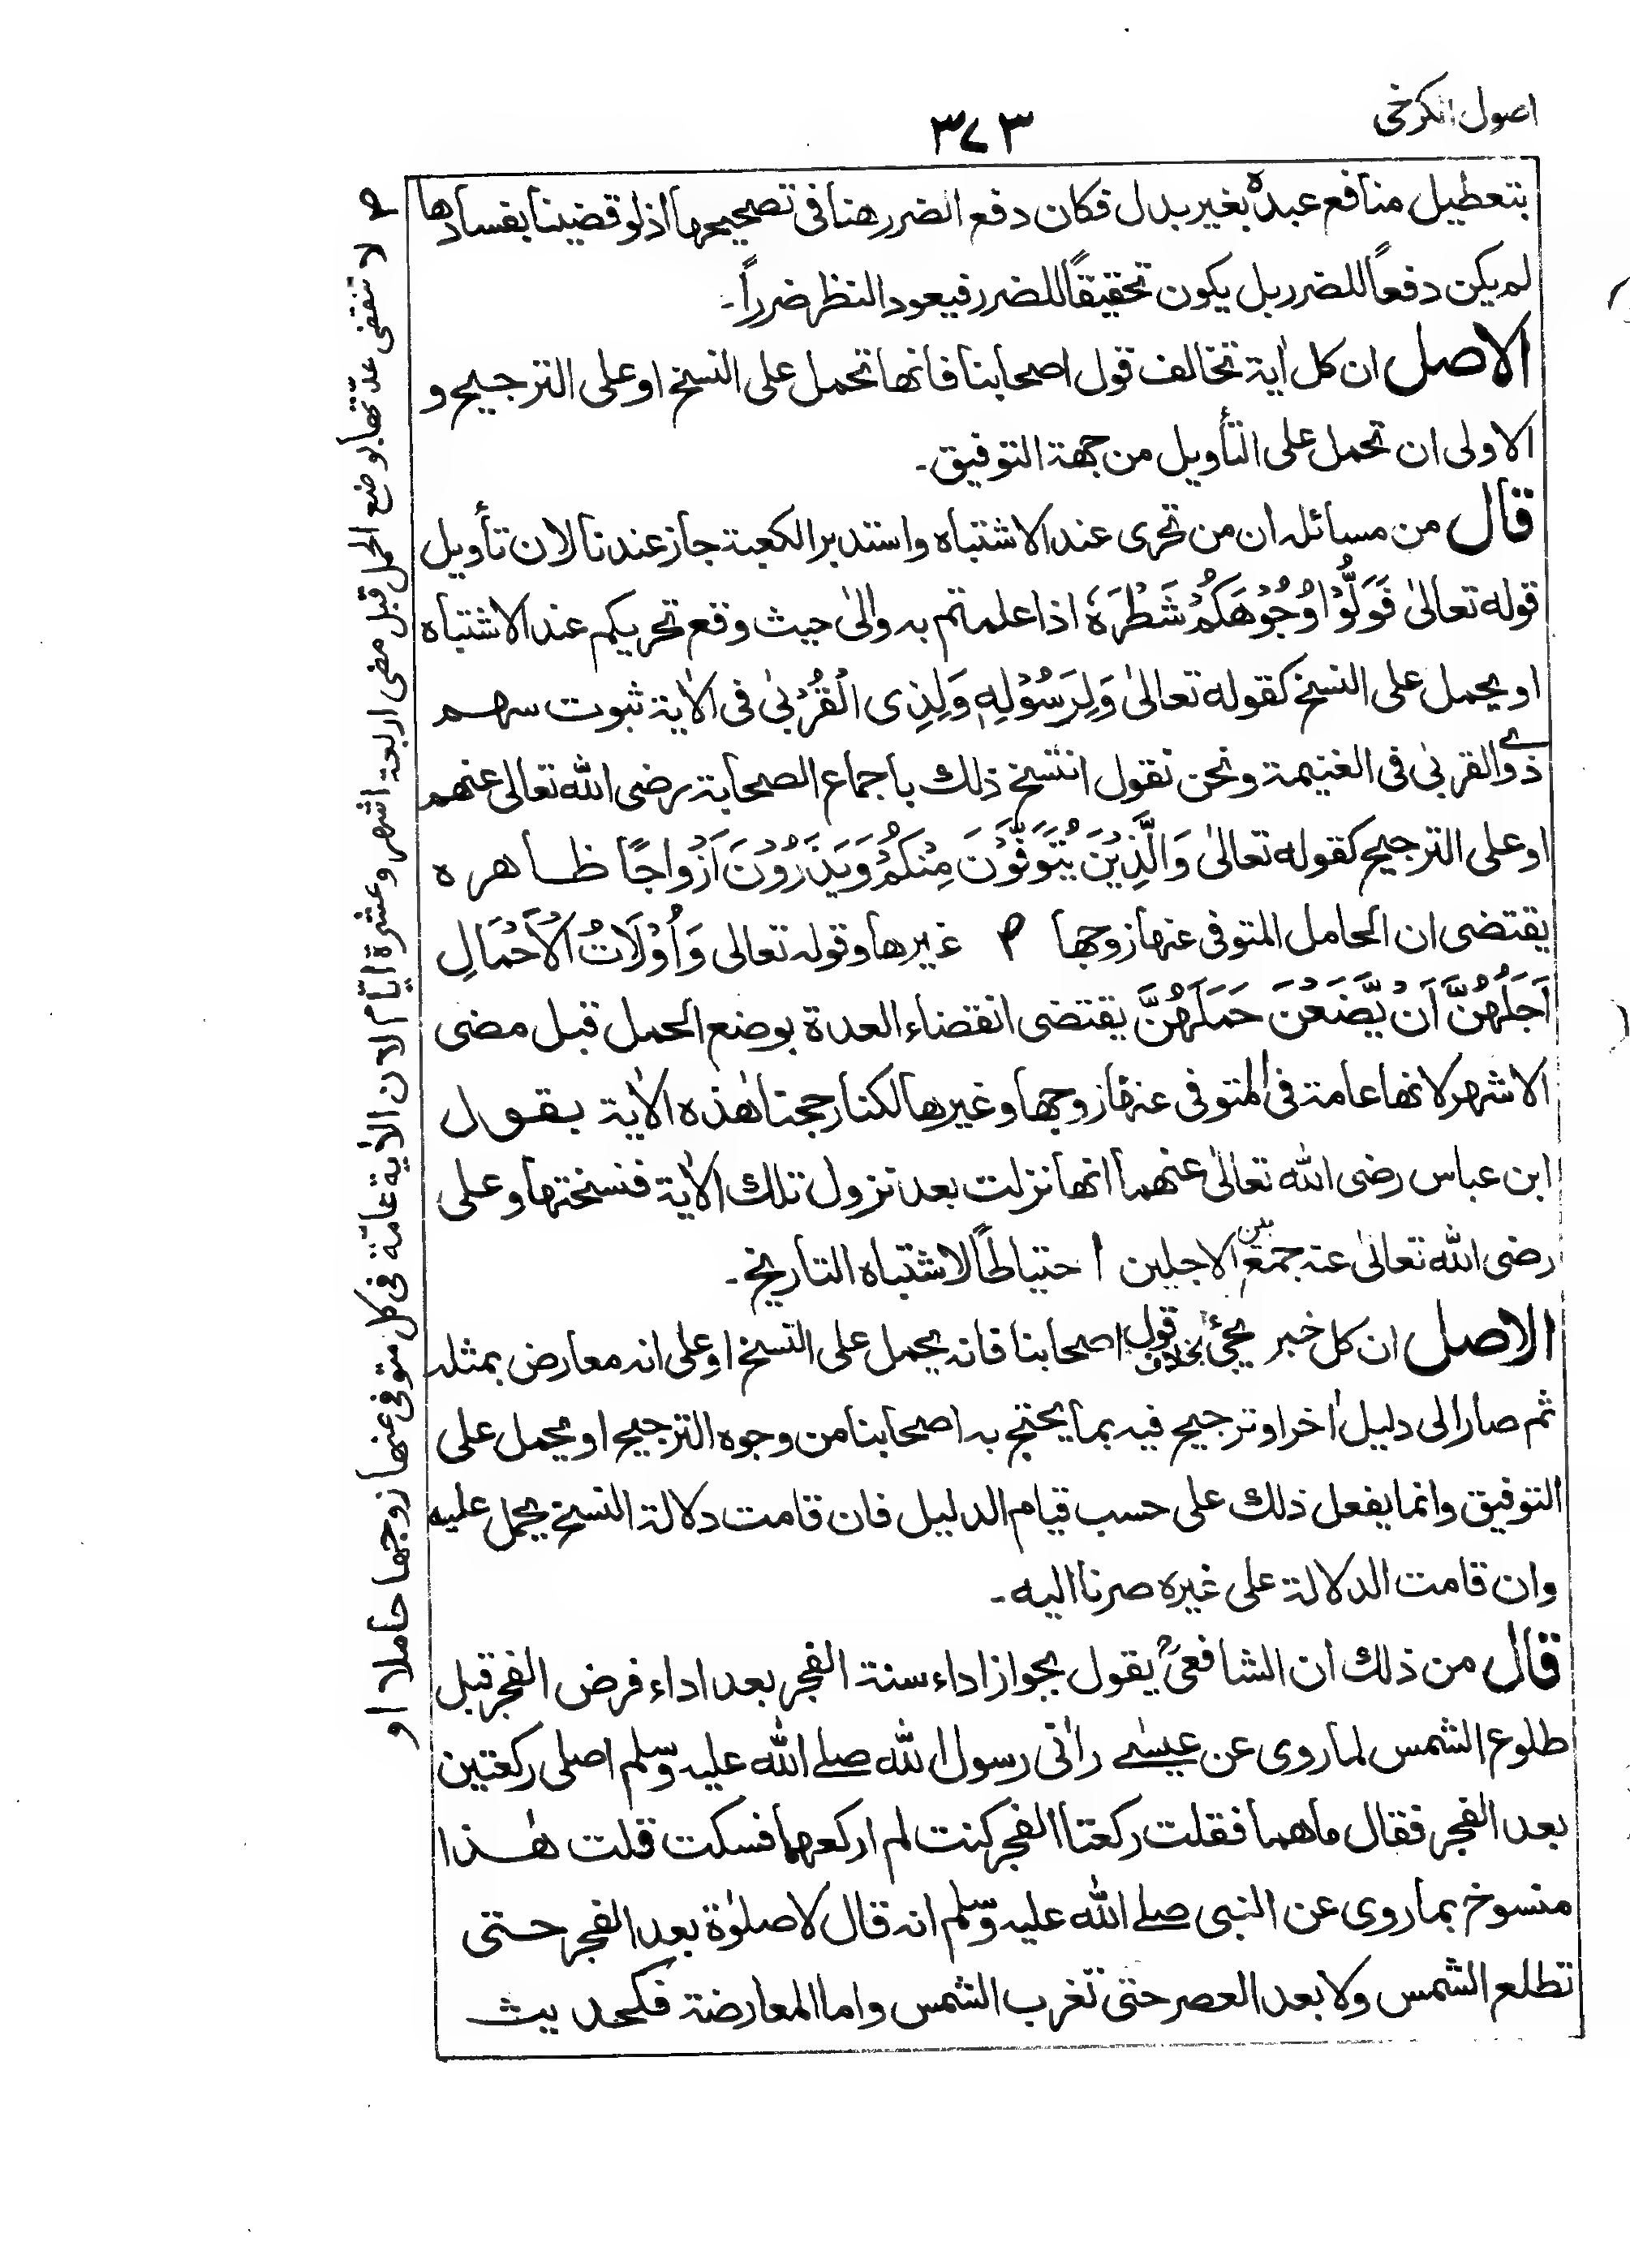 اصول الكرخى
٣٧٣
بتعطيل منافع عبده بغير بدل فكان دفع الضرر هنا فى تصحيحها اذ لو قضينا بفسادها
لم يكن دفعاً للضرر بل يكون تحقيقاً للضرر فيعود النظر ضرراً۔
الاصل ان كل اٰية تخالف قول اصحابنا فانها تحمل على النسخ او على الترجيح و
الاولى ان تحمل على التأويل من جهة التوفيق۔
قال من مسائله ان من تحرى عند الاشتباه واستدبر الكعبة جاز عندنا لان تأويل
قوله تعالىٰ فَوَلُّوْا وُجُوْهَكُمْ شَطْرَهٗ اذا علمتم به والىٰ حيث وقع تحريكم عند الاشتباه
او يحمل على النسخ كقوله تعالىٰ وَلِرَسُوْلِهٖ وَلِذِى الْقُرْبىٰ فى الاٰية ثبوت سهم
ذوى القربىٰ فى الغنيمة ونحن نقول انتسخ ذلك باجماع الصحابة رضى الله تعالى عنهم
او على الترجيح كقوله تعالىٰ وَالَّذِيْنَ يُتَوَفَّوْنَ مِنْكُمْ وَيَذَرُوْنَ اَزْوَاجًا ظاهره
يقتضى ان الحامل المتوفى عنها زوجها ۲ غيرها وقوله تعالى وَاُوْلَاتُ الْاَحْمَالِ
اَجَلُهُنَّ اَنْ يَّضَعْنَ حَمَلَهُنَّ يقتضى انقضاء العدة بوضع الحمل قبل مضى
الاشهر لانها عامة فى المتوفى عنها زوجها وغيرها لكنا رجحنا هٰذه الاٰية بقول
ابن عباس رضى الله تعالىٰ عنهما انها نزلت بعد نزول تلك الاٰية فنسختها وعلى
رضى الله تعالىٰ عنه جمع بين الاجلين احتياطاً لاشتباه التاريخ۔
الاصل ان كل خبر يجئ بخلاف قول اصحابنا فانه يحمل على النسخ او على انه معارض بمثله
ثم صار الى دليل اٰخر او ترجيح فيه بما يحتج به اصحابنا من وجوه الترجيح او يحمل على
التوفيق وانما يفعل ذلك على حسب قيام الدليل فان قامت دلالة النسخ يحمل عليه
وان قامت الدلالة على غيره صرنا اليه۔
قال من ذلك ان الشافعىؒ يقول بجواز اداء سنة الفجر بعد اداء فرض الفجر قبل
طلوع الشمس لما روى عن عيسٰے راٰنى رسول الله صلے الله عليه وسلم اصلى ركعتين
بعد الفجر فقال ماهما فقلت ركعتا الفجر كنت لم اركعهما فسكت قلت هٰذا
منسوخ بما روى عن النبى صلے الله عليه وسلم انه قال لا صلوٰة بعد الفجر حتى
تطلع الشمس ولا بعد العصر حتى تغرب الشمس واما المعارضة فكحديث
۲ لا تنقضى عدّتها بوضع الحمل قبل مضى اربعة اشهر وعشرة ايّام لان الاٰية عامّة فى كل متوفى عنها زوجها حاملا او